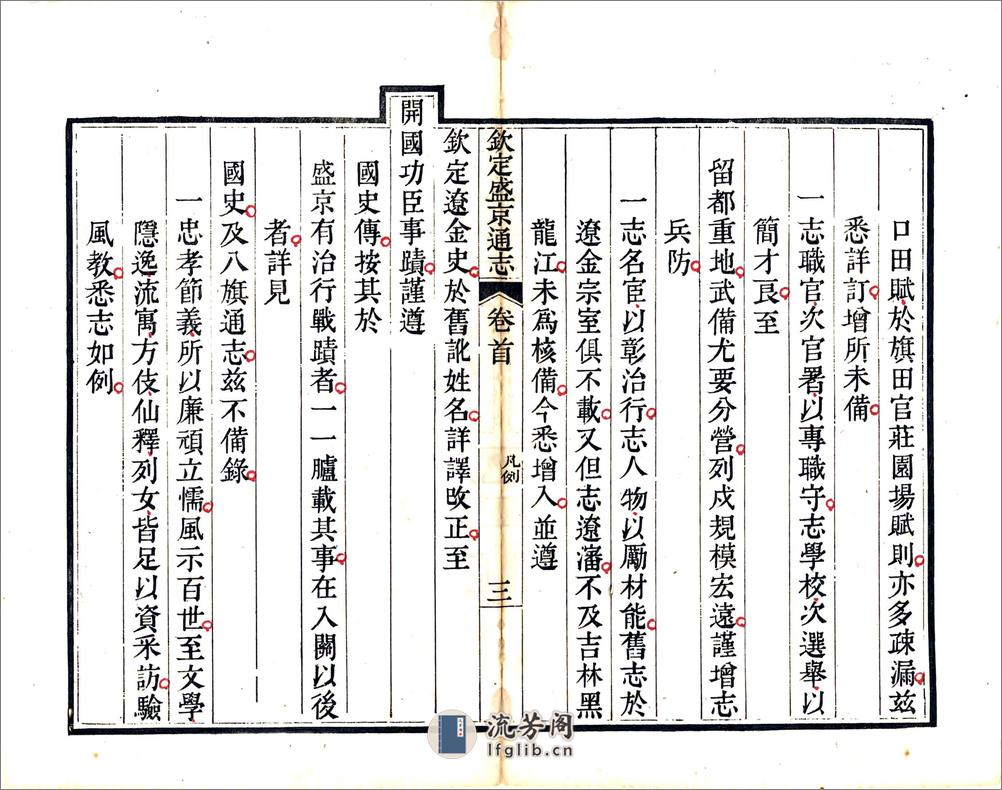 口田賦於旗田官莊園場賦則亦多疎漏兹
悉詳訂增所未備
一志職官次官署以專職守志學校次選舉以
簡才良至
留都重地武備尤要分營列戍規模宏遠謹增志
兵防
一志名宦以彰治行志人物以勵材能舊志於
遼金宗室俱不載又但志遼瀋不及吉林黑
龍江未爲核備今悉增入並遵
欽定盛京通志 卷首 凡例 三
欽定遼金史於舊訛姓名詳譯改正至
開國功臣事蹟謹遵
國史傳按其於
盛京有治行戰蹟者一一臚載其事在入關以後
者詳見
國史及八旗通志兹不備錄
一忠孝節義所以廉頑立懦風示百世至文學
隱逸流寓方伎仙釋列女皆足以資采訪驗
風教悉志如例
流芳阁
lfglib.cn